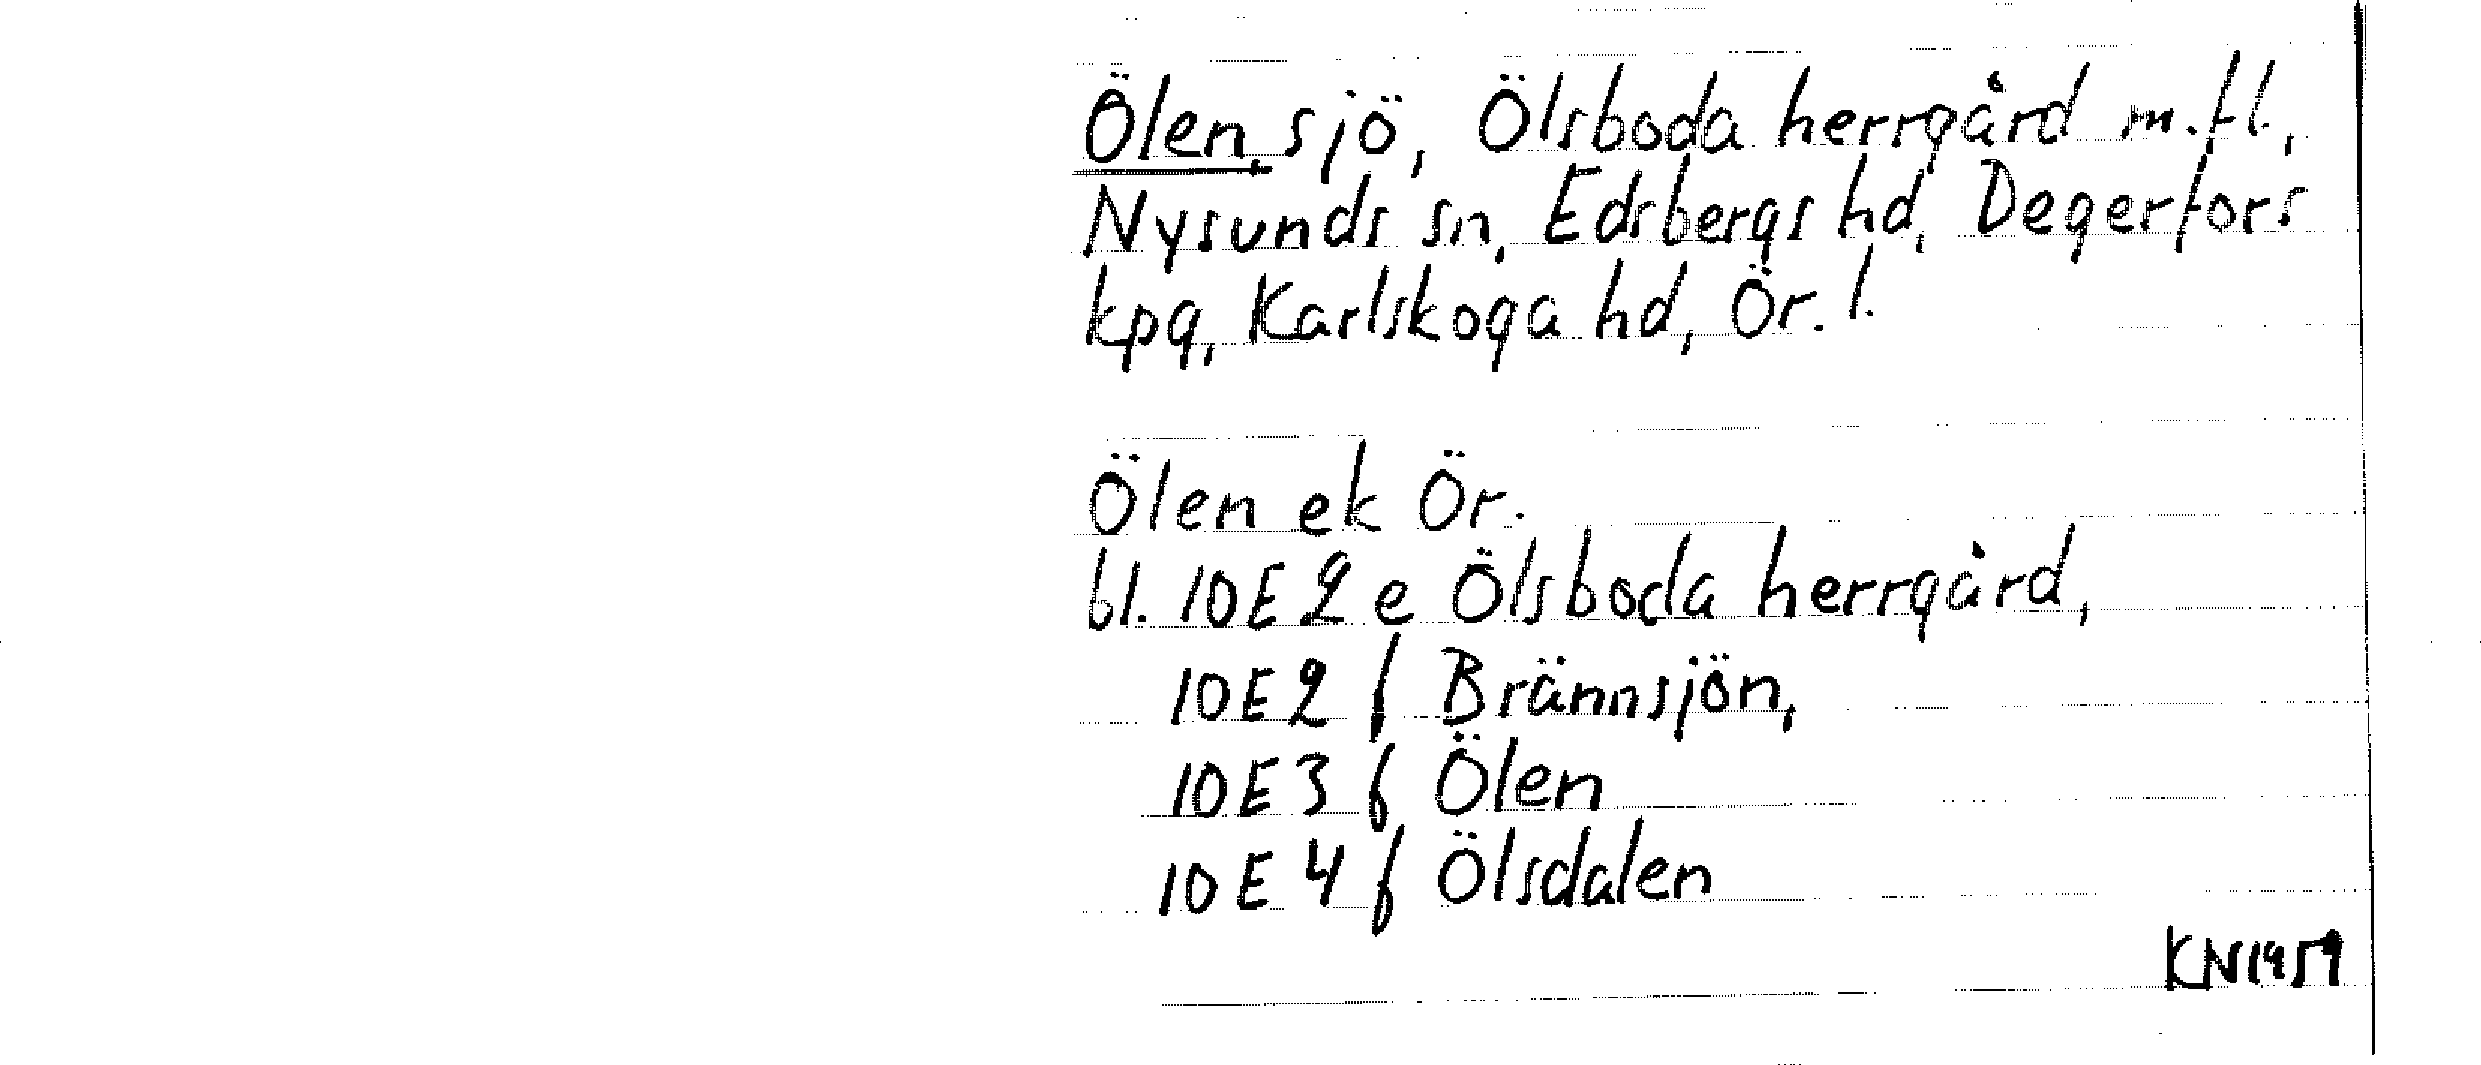 Ölen, sjö, Ölsboda herrgård m.fl.,
Nysunds sn, Edsbergs hd, Degerfors
kpg, Karlskoga hd, Ör. l.
Ölen ek Ör.
bl. 10E 2 e Ölsboda herrgård,
10E 2 f Brännsjön,
10E 3 f Ölen
10E 4 f Ölsdalen
KN 1959